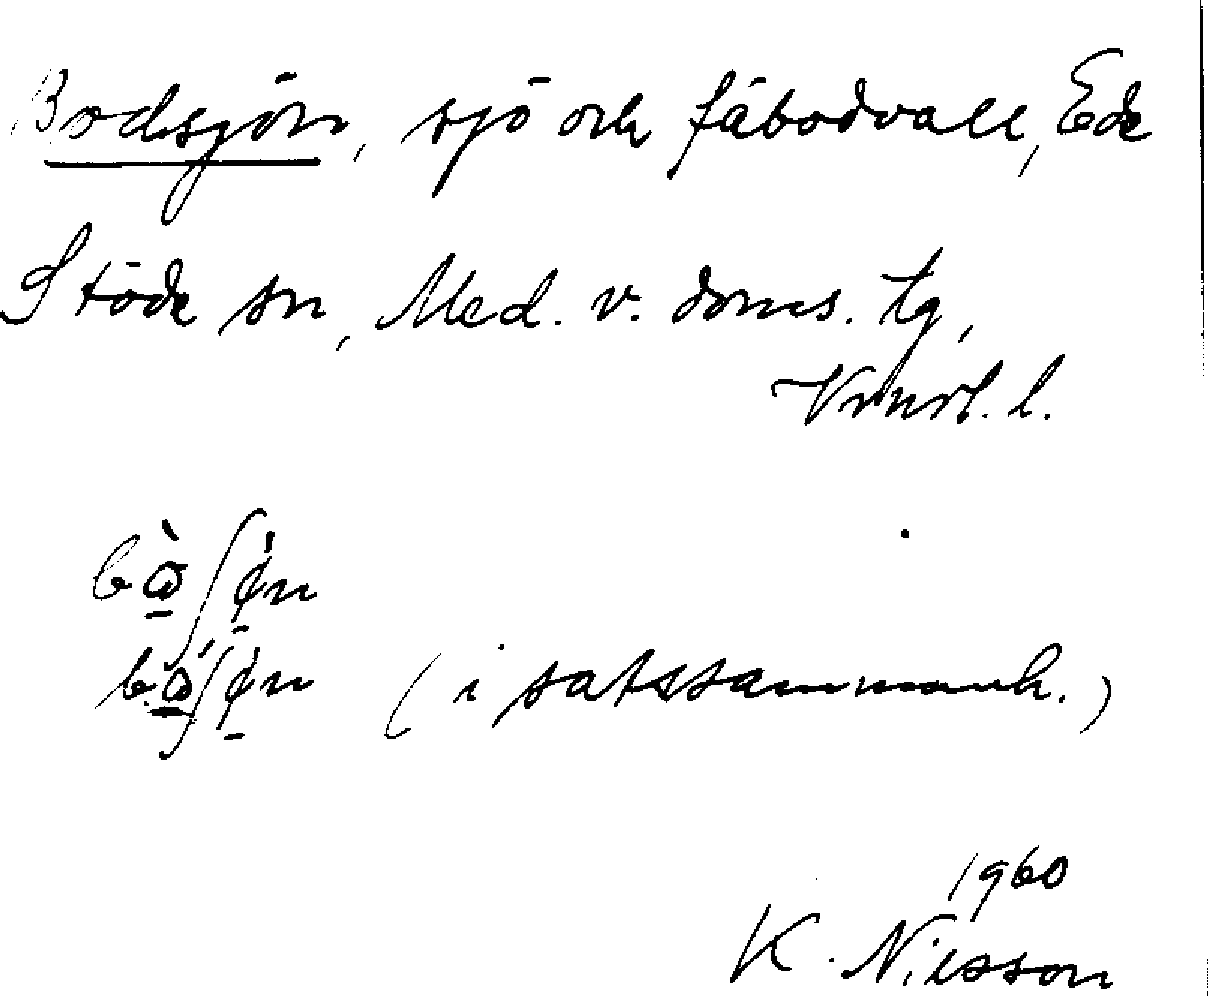 Bodsjön, sjö och fäbodvall, Ede
Stöde sn, Med. v. doms. tg,
Vnorl. l.
(i satssammanh.)
1960
K. Nilsson